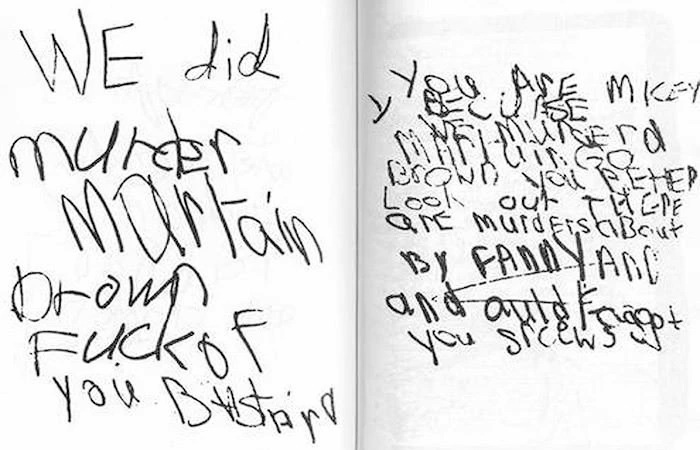 WE did
murder
martain
brown
Fuckof
you BAstArd
You ArE mICEY
y BECUASE
WE murderd
MARTAIN GO
Brown you BETTER
Look out THERE
arE murdErs about
By FANNY AND
and auld Faggot
you srcews